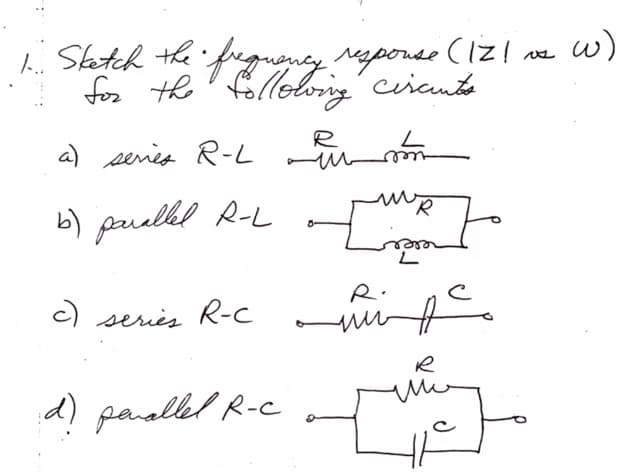 1. Sketch the frequency response (|Z| vs ω)
for the following circuits
a) series R-L R L
b) parallel R-L R
L
c) series R-C R C
R
d) parallel R-C C